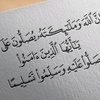 اللَّهَ وَمَلَٰٓئِكَتَهُۥ يُصَلُّونَ عَلَى
يَٰٓأَيُّهَا الَّذِينَ ءَامَنُوا
صَلُّوا عَلَيْهِ وَسَلِّمُوا تَسْلِيمًا